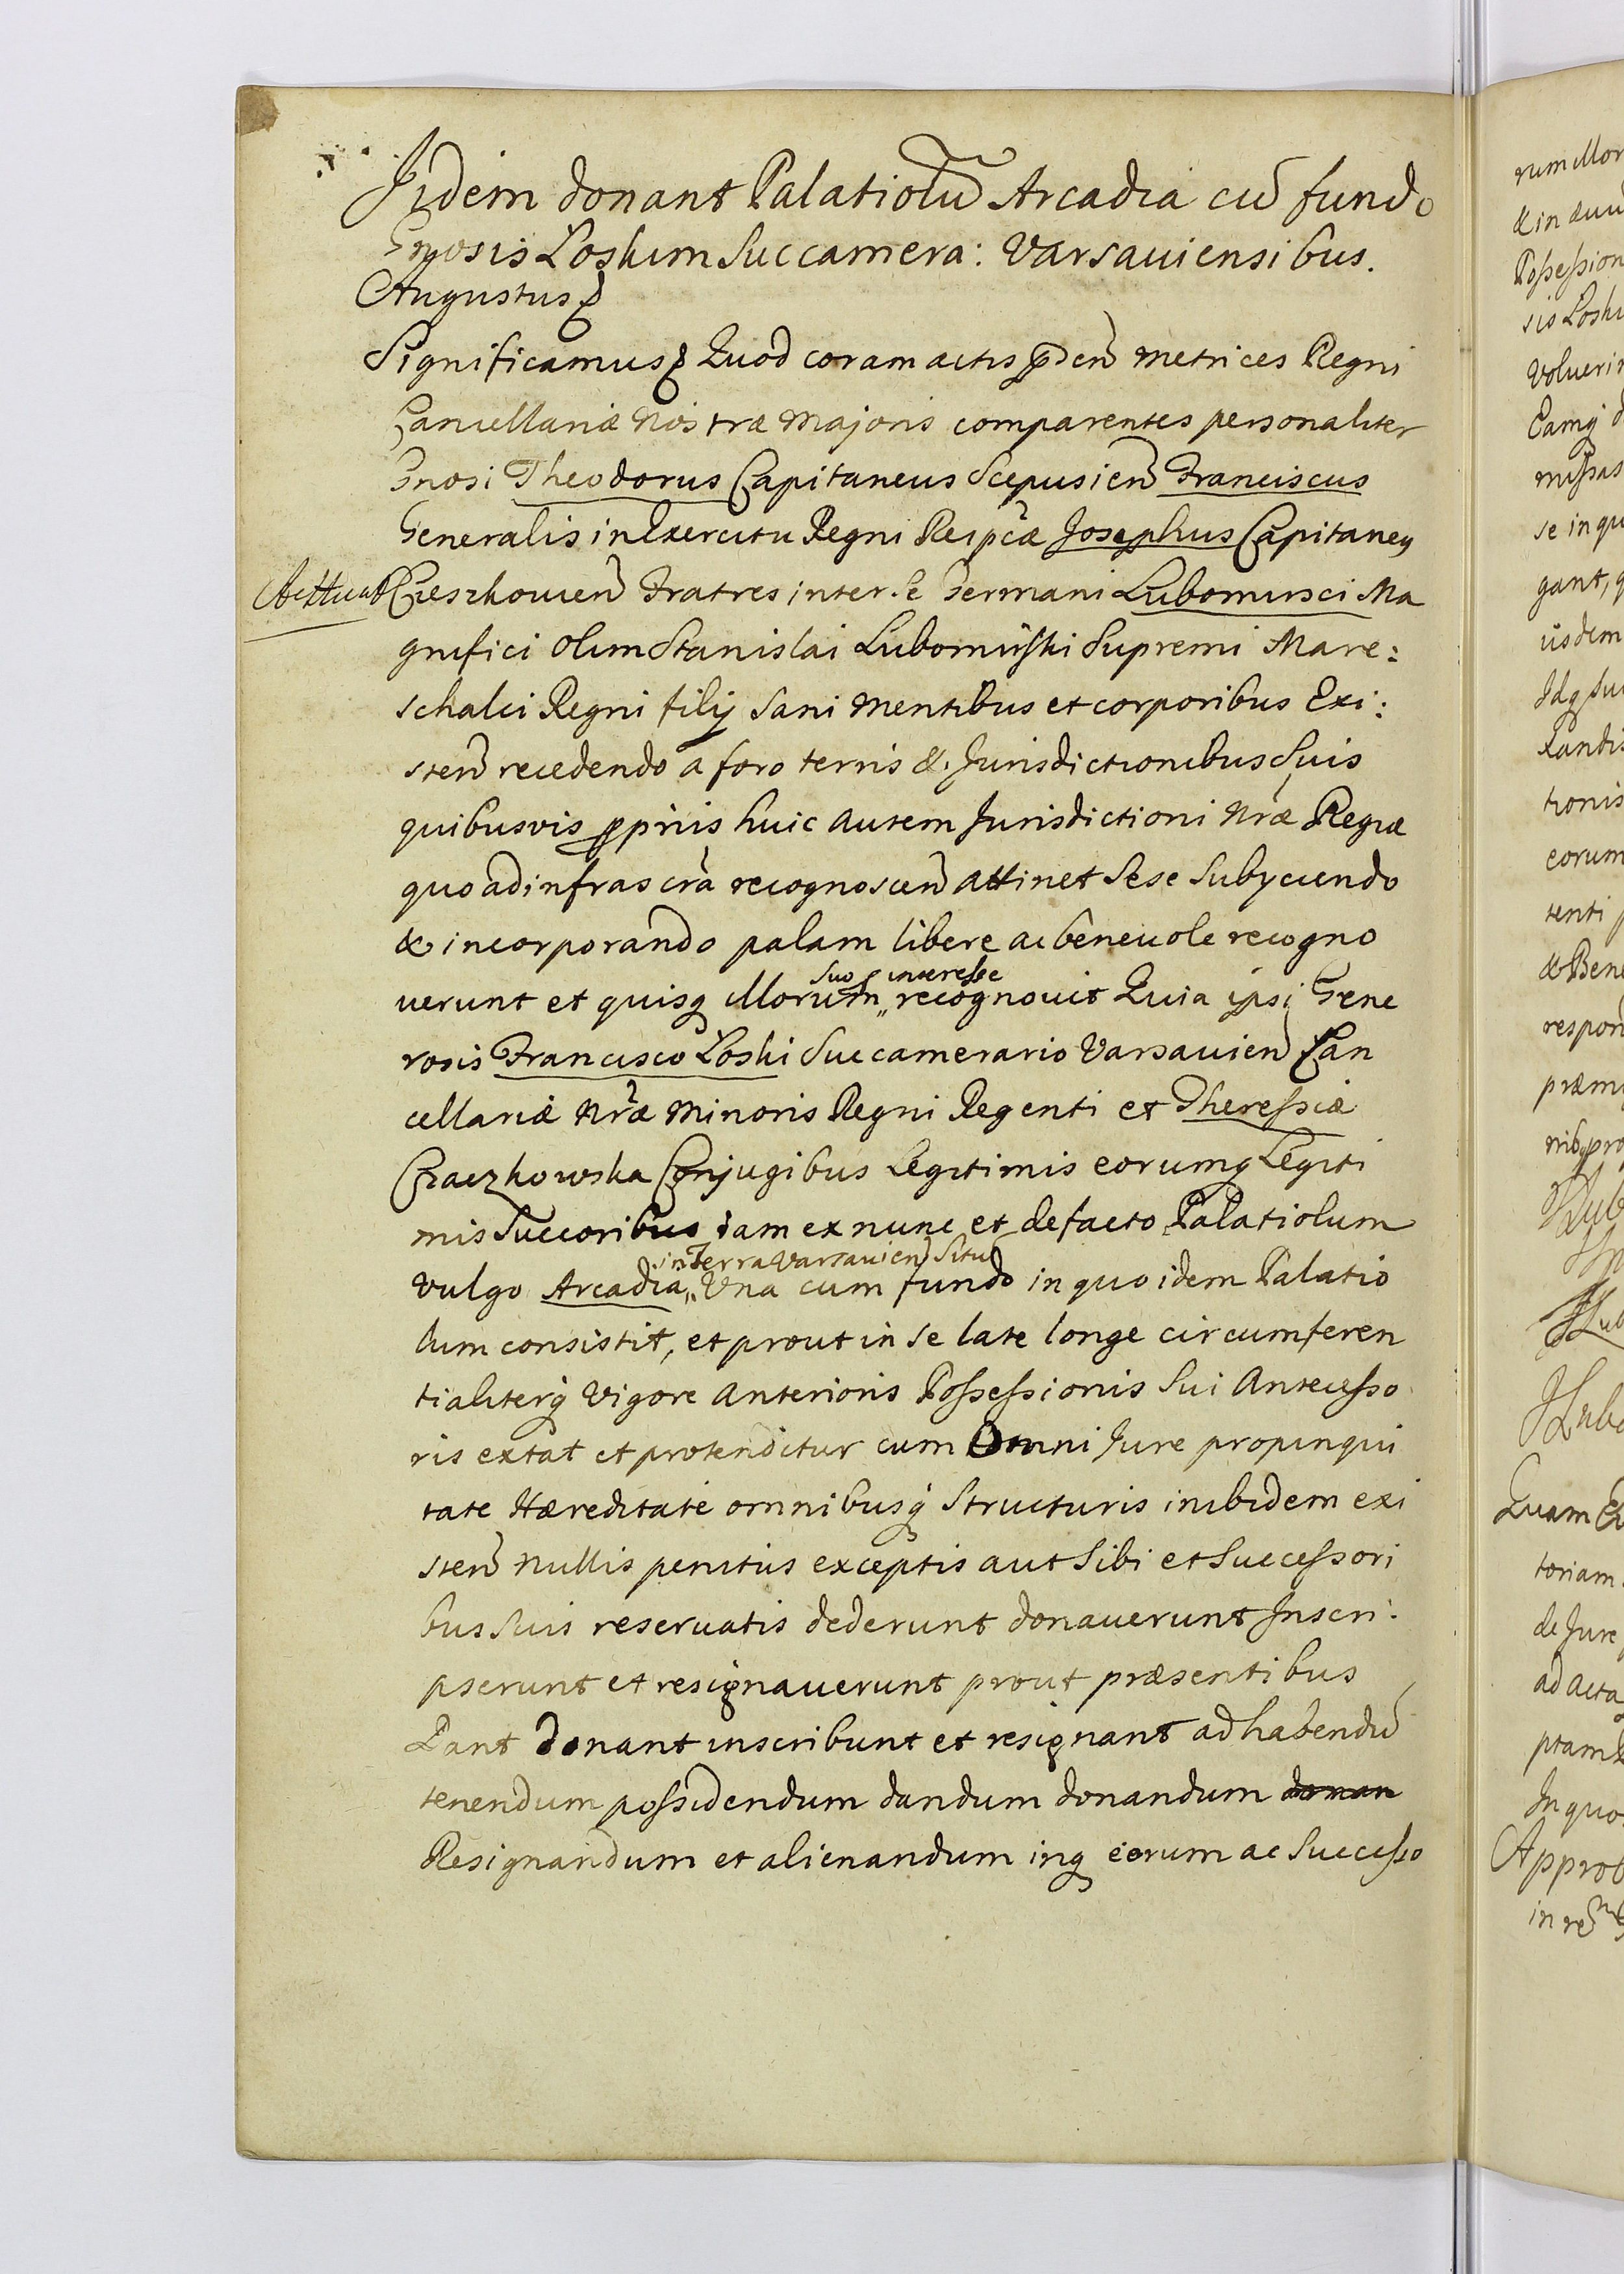 Jidem donant Palatiolũ Arcadia cũ fundo
Gnosis Loskim Succamera: Varsauiensibus.
Augustus
Significamus Quod coram actis p̃den̄ Metrices Regni
Cancellariæ Nostræ Majoris comparentes personaliter
Gnosi Theodorus Capitaneus Scepusien̄ Franciscus
Generalis in Exercitu Regni Reipcæ Josephus Capitaneq
Czeszkouien̄ Fratres inter se Germani Lubomirsci Ma
gnifici olim Stanislai Lubomirski Supremi Mare:
schalci Regni filij Sani Mentibus et corporibus Exi:
sten̄ recedendo a foro terris & Jurisdictionibus Suis
quibusvis ppriis huic autem Jurisdictioni Nræ Regiæ
quo ad infrascra recognoscen̄ attinet Sese Subyciendo
& incorporando palam libere ac beneuole recogno
suo interesse
uerunt et quisq illorum „ recognouit Quia ipsi Gene
rosis Francisco Loski Succamerario Varsauien̄ Can
cellariæ Nræ Minoris Regni Regenti et Theressiæ
Czaczkowska Conjugibus Legitimis eorumq Legiti
mis Succoribus iam ex nunc et defacto Palatiolum
in Terra Varsauien̄ Situ
Vulgo Arcadia „ Una cum fundo in quo idem Palatio
lum consistit, et prout in se late longe circumferen
tialiterq Vigore Anterioris Possessionis Sui Antecesso
ris extat et protenditur cum Omni Jure propinqui
tate Hæreditate omnibusq Structuris inibidem exi
sten̄ Nullis penitus exceptis aut Sibi et Successori
bus Suis reseruatis dederunt donauerunt Inscri:
pserunt et resignauerunt prout præsentibus
Dant donant inscribunt et resignant ad habendũ
tenendum possidendum dandum donandum donan
Resignandum et alienandum inq eorum ac Successo
rum illor
& in duu
Possession
sis Loski
Voluerin
Eamq d
missas
se in qu
gant, q
iisdem
Idq su
tionis
eorum
tenti p
& Bene
respon
præmi
Quam
toriam
de Jure
ad acta
ptam
In quo
Approb